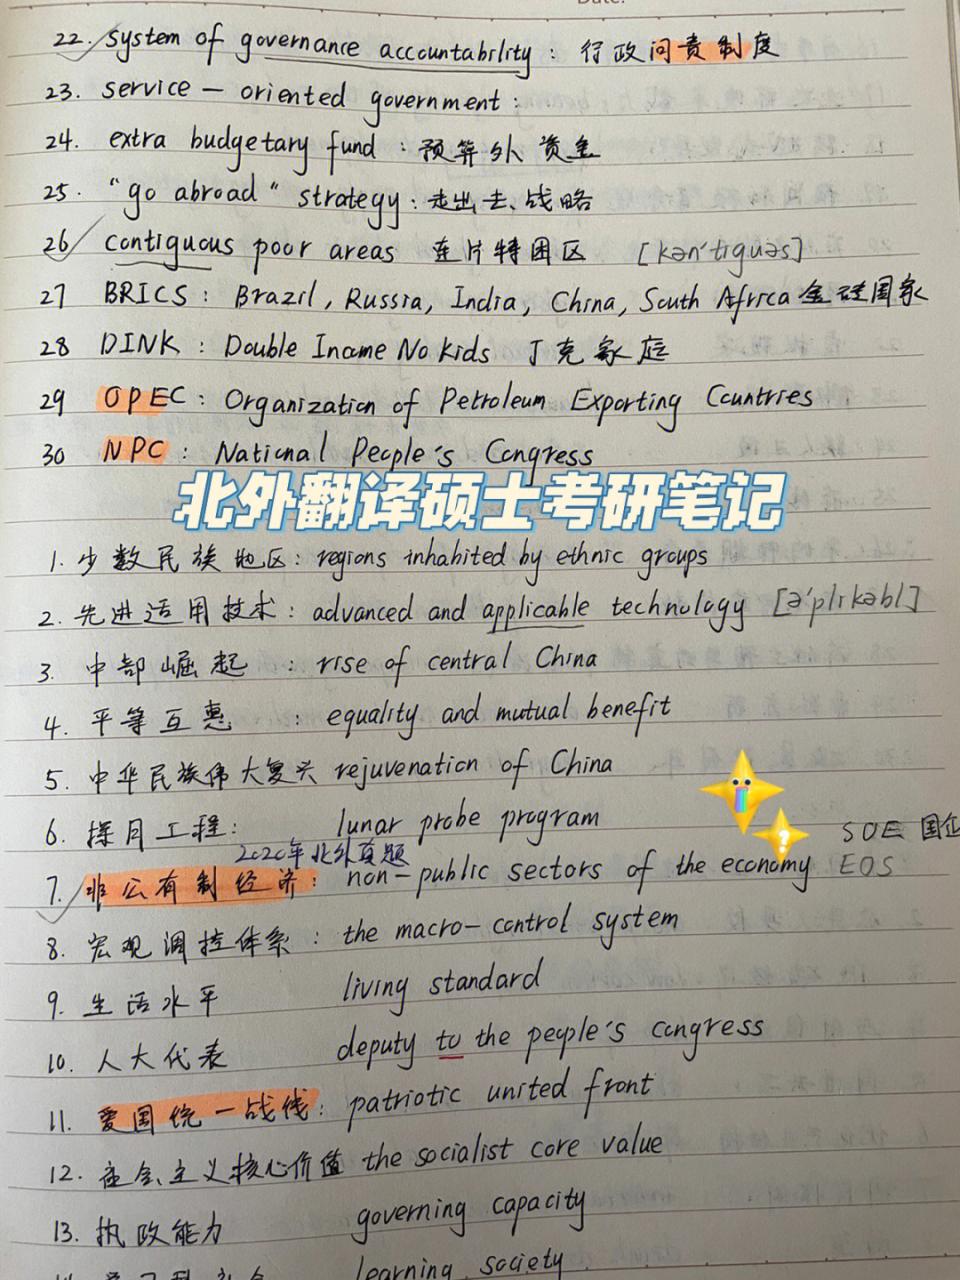 Date:
22. system of governance accountability : 行政问责制度
23. service — oriented government :
24. extra budgetary fund : 预算外资金
25. "go abroad" strategy : 走出去战略
26 contiguous poor areas 连片特困区 [kən'tɪguəs]
27 BRICS : Brazil, Russia, India, China, South Africa 金砖国家
28 DINK : Double Income No Kids 丁克家庭
29 OPEC : Organization of Petroleum Exporting Countries
30 NPC : National People's Congress
北外翻译硕士考研笔记
1. 少数民族地区: regions inhabited by ethnic groups
2. 先进适用技术: advanced and applicable technology [ə'plɪkəbl]
3. 中部崛起 : rise of central China
4. 平等互惠 : equality and mutual benefit
5. 中华民族伟大复兴 rejuvenation of China
6. 探月工程: lunar probe program
SOE 国企
2020年北外真题
7. 非公有制经济: non-public sectors of the economy EOS
8. 宏观调控体系: the macro-control system
9. 生活水平 living standard
10. 人大代表 deputy to the people's congress
11. 爱国统一战线: patriotic united front
12. 社会主义核心价值 the socialist core value
13. 执政能力 governing capacity
learning society